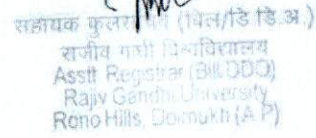 सहायक (वित्त/डि.डि.अ.)
राजीव गांधी विश्वविद्यालय
Asstt Registrar (Bill/DDO)
Rajiv Gandhi University
Rono Hills, Doimukh (A.P)